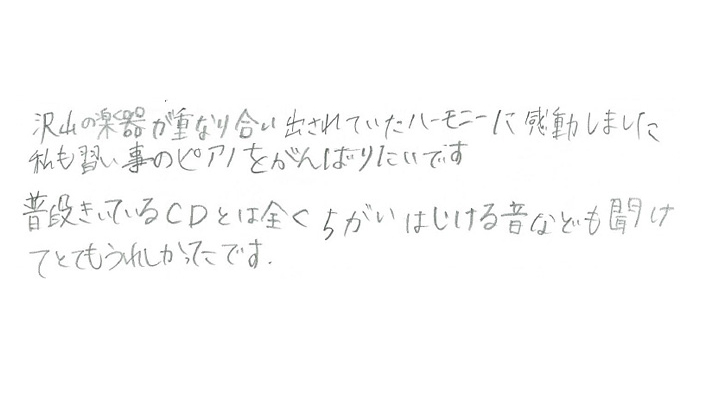 沢山の楽器が重なり合い出されていたハーモニーに感動しました
私も習い事のピアノをがんばりたいです
普段きいているCDとは全くちがいはじける音なども聞け
てとてもうれしかったです.